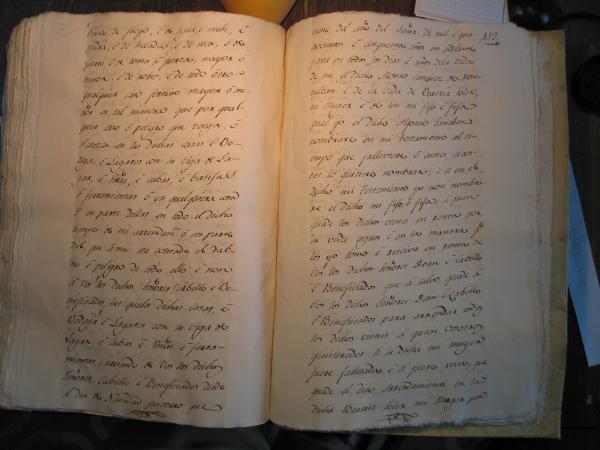 terias de fuego, é de agua é nieve, é
piedra, é de helada, é de seca, é de
guerra é de toma é fuerza, mayor ó
menor, é de robo, é de todo otro
qualquier caso fortuito mayor ó me-
nor en tal manera que por qual
quier caso ó peligro que venga, ó
acaesca en las dichas casas é Bo-
dega, é Lagares con su viga de La-
gar, é Viñas, é cubas, é vasijas
é ferramientas ó en qualquiera cosa
ó en parte dellas en todo el dicho
tiempo de mi arrendamto. ó en parte
del que á nos sea contado el dab-
no é peligro de todo ello é non
á vos los dichos Señores Cabello é Be-
neficiados, las quales dichas casas, é
Bodega é Lagares con su viga de
Lagar é cubas é Viñas é ferra-
mientas, arriendo de vos los dichos
Señores Cabello é Beneficiados desde
el dia de Navidad primero que
verne, del año del Señor de mil é qua
trocientos é cinquenta años en adelante
para en todos los dias é años de la vida
de mi, el dicho Alonso Sanchez de
é de la vida de Beatriz
mi Muger é de un mi fijo ó fija
qual yo, el dicho Alfonso Sanchez
nombrare en mi testamento al ti-
empo que fallesciere ó antes quan-
do lo quisiere nombrar, é si en el
dicho mi testamento yo non nombra-
re el dicho mi fijo ó fija, é quien
quede los dichos vienes en renta por
su vida segun é en la manera q.
los yo tomo é rescivo en renta de
vos los dichos Señores Dean é Cabello
é Beneficiados que á salvo quede á
vos los dichos Señores Dean é Cabello
é Beneficiados para arrendar todos
los dichos vienes á quien vosotros
quisieredes é si la dicha mi muger
fuere fallesciada é si fuere viva, que
quede el dicho arrendamiento en la
dicha Beatriz mi Muger por